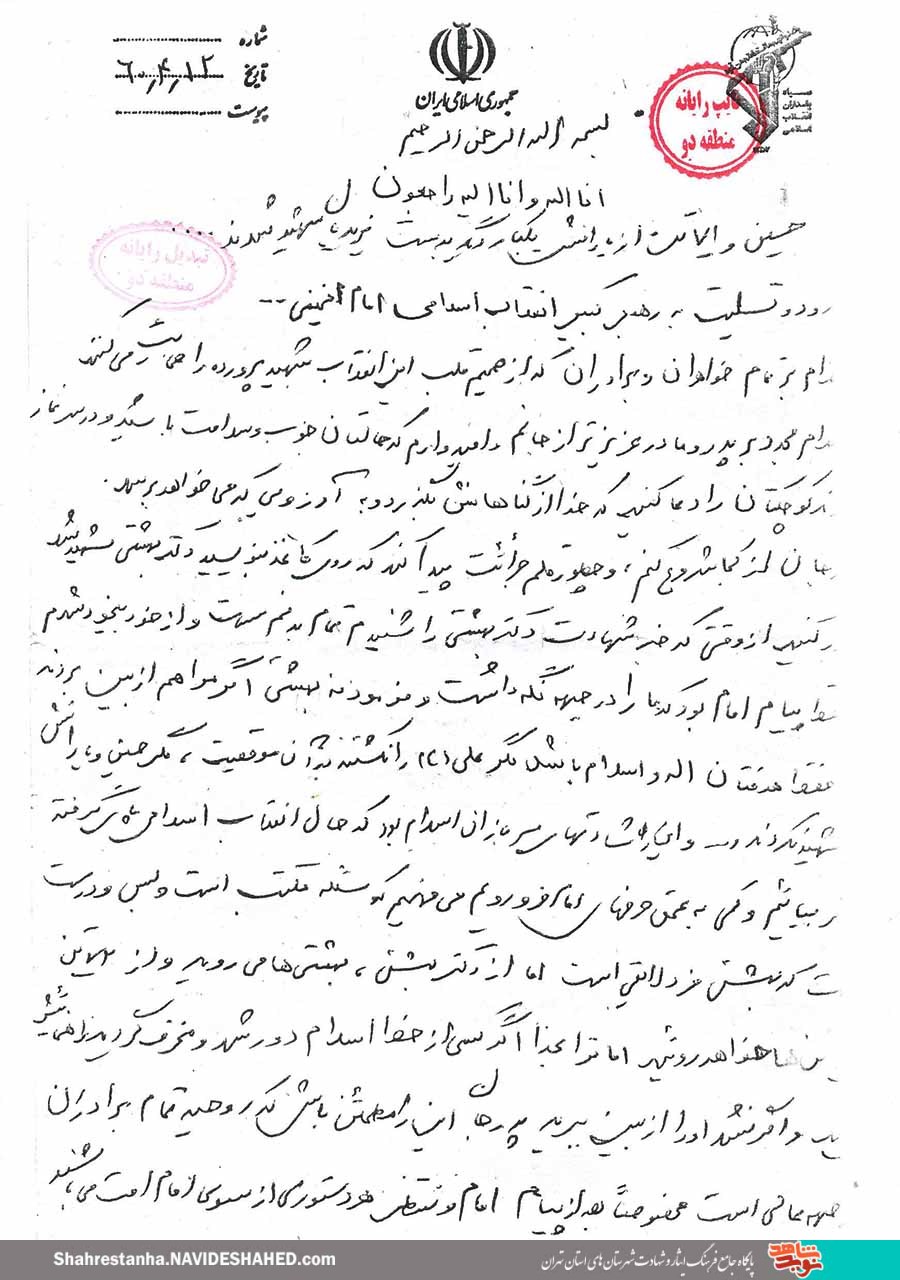 شماره ............
تاریخ ۶۰٫۴٫۱۲
پیوست ............
جمهوری اسلامی ایران
سپاه
پاسداران
انقلاب
اسلامی
تایپ رایانه
منطقه دو
بسمه اله الرحمن الرحیم
انا اله و انا الیه راجعون
حسین و ۷۲ تن از یارانش یکبار دگر بدست یزیدیان شهید شدند ....
تبدیل رایانه
منطقه دو
رود و تسلیت به رهبر کبیر انقلاب اسلامی امام خمینی --
بر تمام خواهران و برادران که از صمیم قلب این انقلاب شهید پرورده را حمایت می کنند
بر پدر و مادر عزیزتر از جانم و امیدوارم که حالتان خوب و سلامت باشید و در سر نماز
کوچکتان را دعا کنید که خدا از گناهانش بگذرد و به آرزویی که می خواهد برسد.
از کجا شروع کنم، و چطور قلم جرائت پیدا کند که روی کاغذ بنویسد دکتر بهشتی شهید شد
کنید از وقتی که خبر شهادت دکتر بهشتی را شنیدم تمام بدنم سست و از خود بیخود شدم
پیام امام بود که ما را در جبهه نگه داشت و فرمود نه بهشتی اگر مرا هم از بین بردند
فقط هدفتان اله و اسلام باشد مگر علی (ع) را نکشتند در آن موقعیت، مگر حسین و یارانش
شهید نکردند و این رشادتهای سربازان اسلام بود که حال انقلاب اسلامی پا گرفته
و کمی به عمق حرفهای امام فرو رویم می فهمیم که مسئله مکتب است و بس و درست
که بهشتی مرد لایقی است اما از دکتر بهشتی، بهشتی ها می روید و از ۷۲ تن
خواهد روئید اما ترا بخدا اگر کسی از خط اسلام دور شد و منحرف گردید راهنمائیش
و اگر نشد او را از بین ببرید پدر جان این را مطمئن باش که روحیه تمام برادران
جبهه عالی است مخصوصاً بعد از پیام امام و منتظر دستوری از سوی امام امت می باشند
Shahrestanha.NAVIDESHAHED.com
پایگاه جامع فرهنگ ایثار و شهادت شهرستان های استان تهران
نوید شاهد